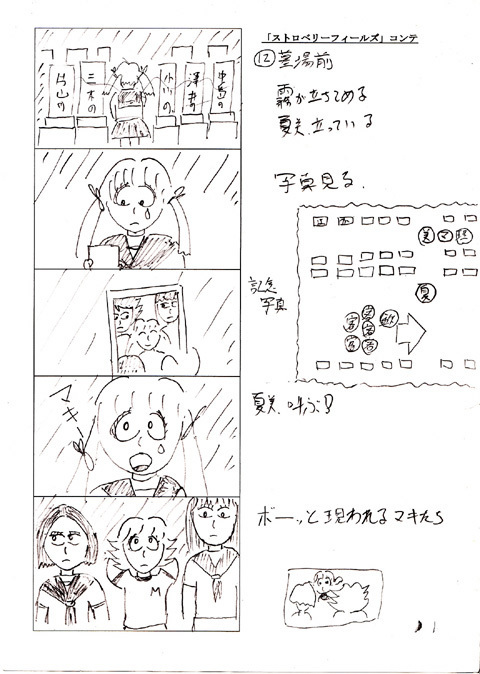 「ストロベリーフィールズ」コンテ
⑫墓場前
霧が立ちこめる
夏美、立っている
片山の
三木の
小川の
写真見る、
美 マ 理
夏
記念
写真
マキー
夏美、叫ぶ!
ボーッと現われるマキたち
M